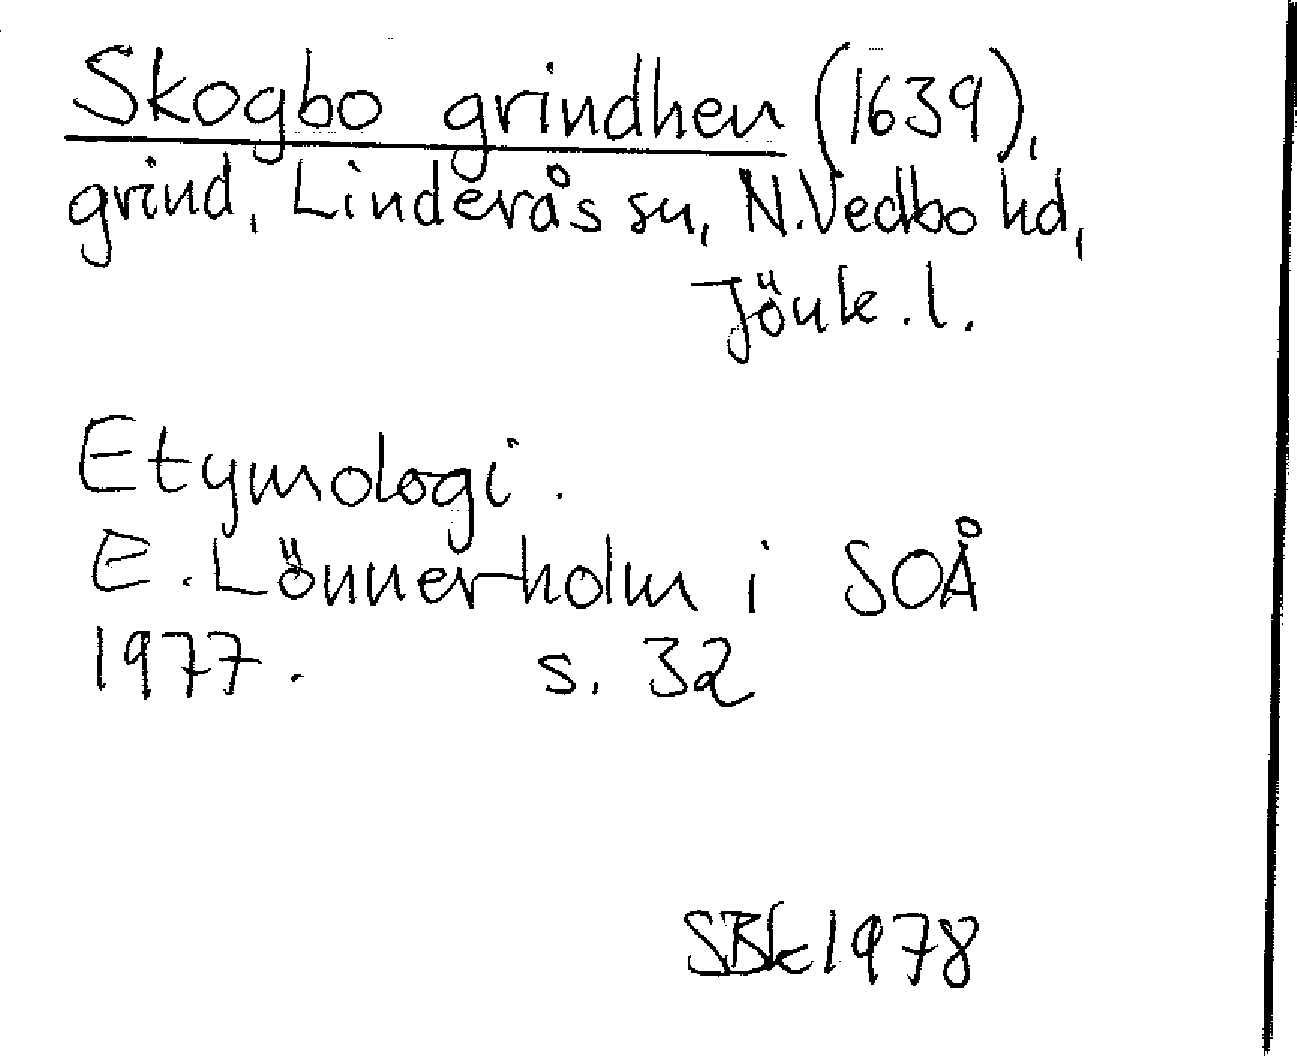 Skogbo grindhen (1639),
grind, Linderås sn, N. Vedbo hd,
Jönk. l.
Etymologi.
E. Lönnerholm i SOÅ
1977. s. 32
SBk 1978